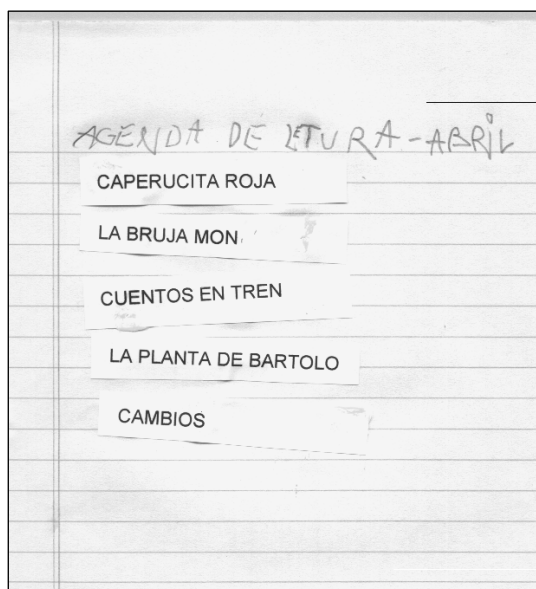 AGENDA DE LETURA - ABRIL
CAPERUCITA ROJA
LA BRUJA MON
CUENTOS EN TREN
LA PLANTA DE BARTOLO
CAMBIOS